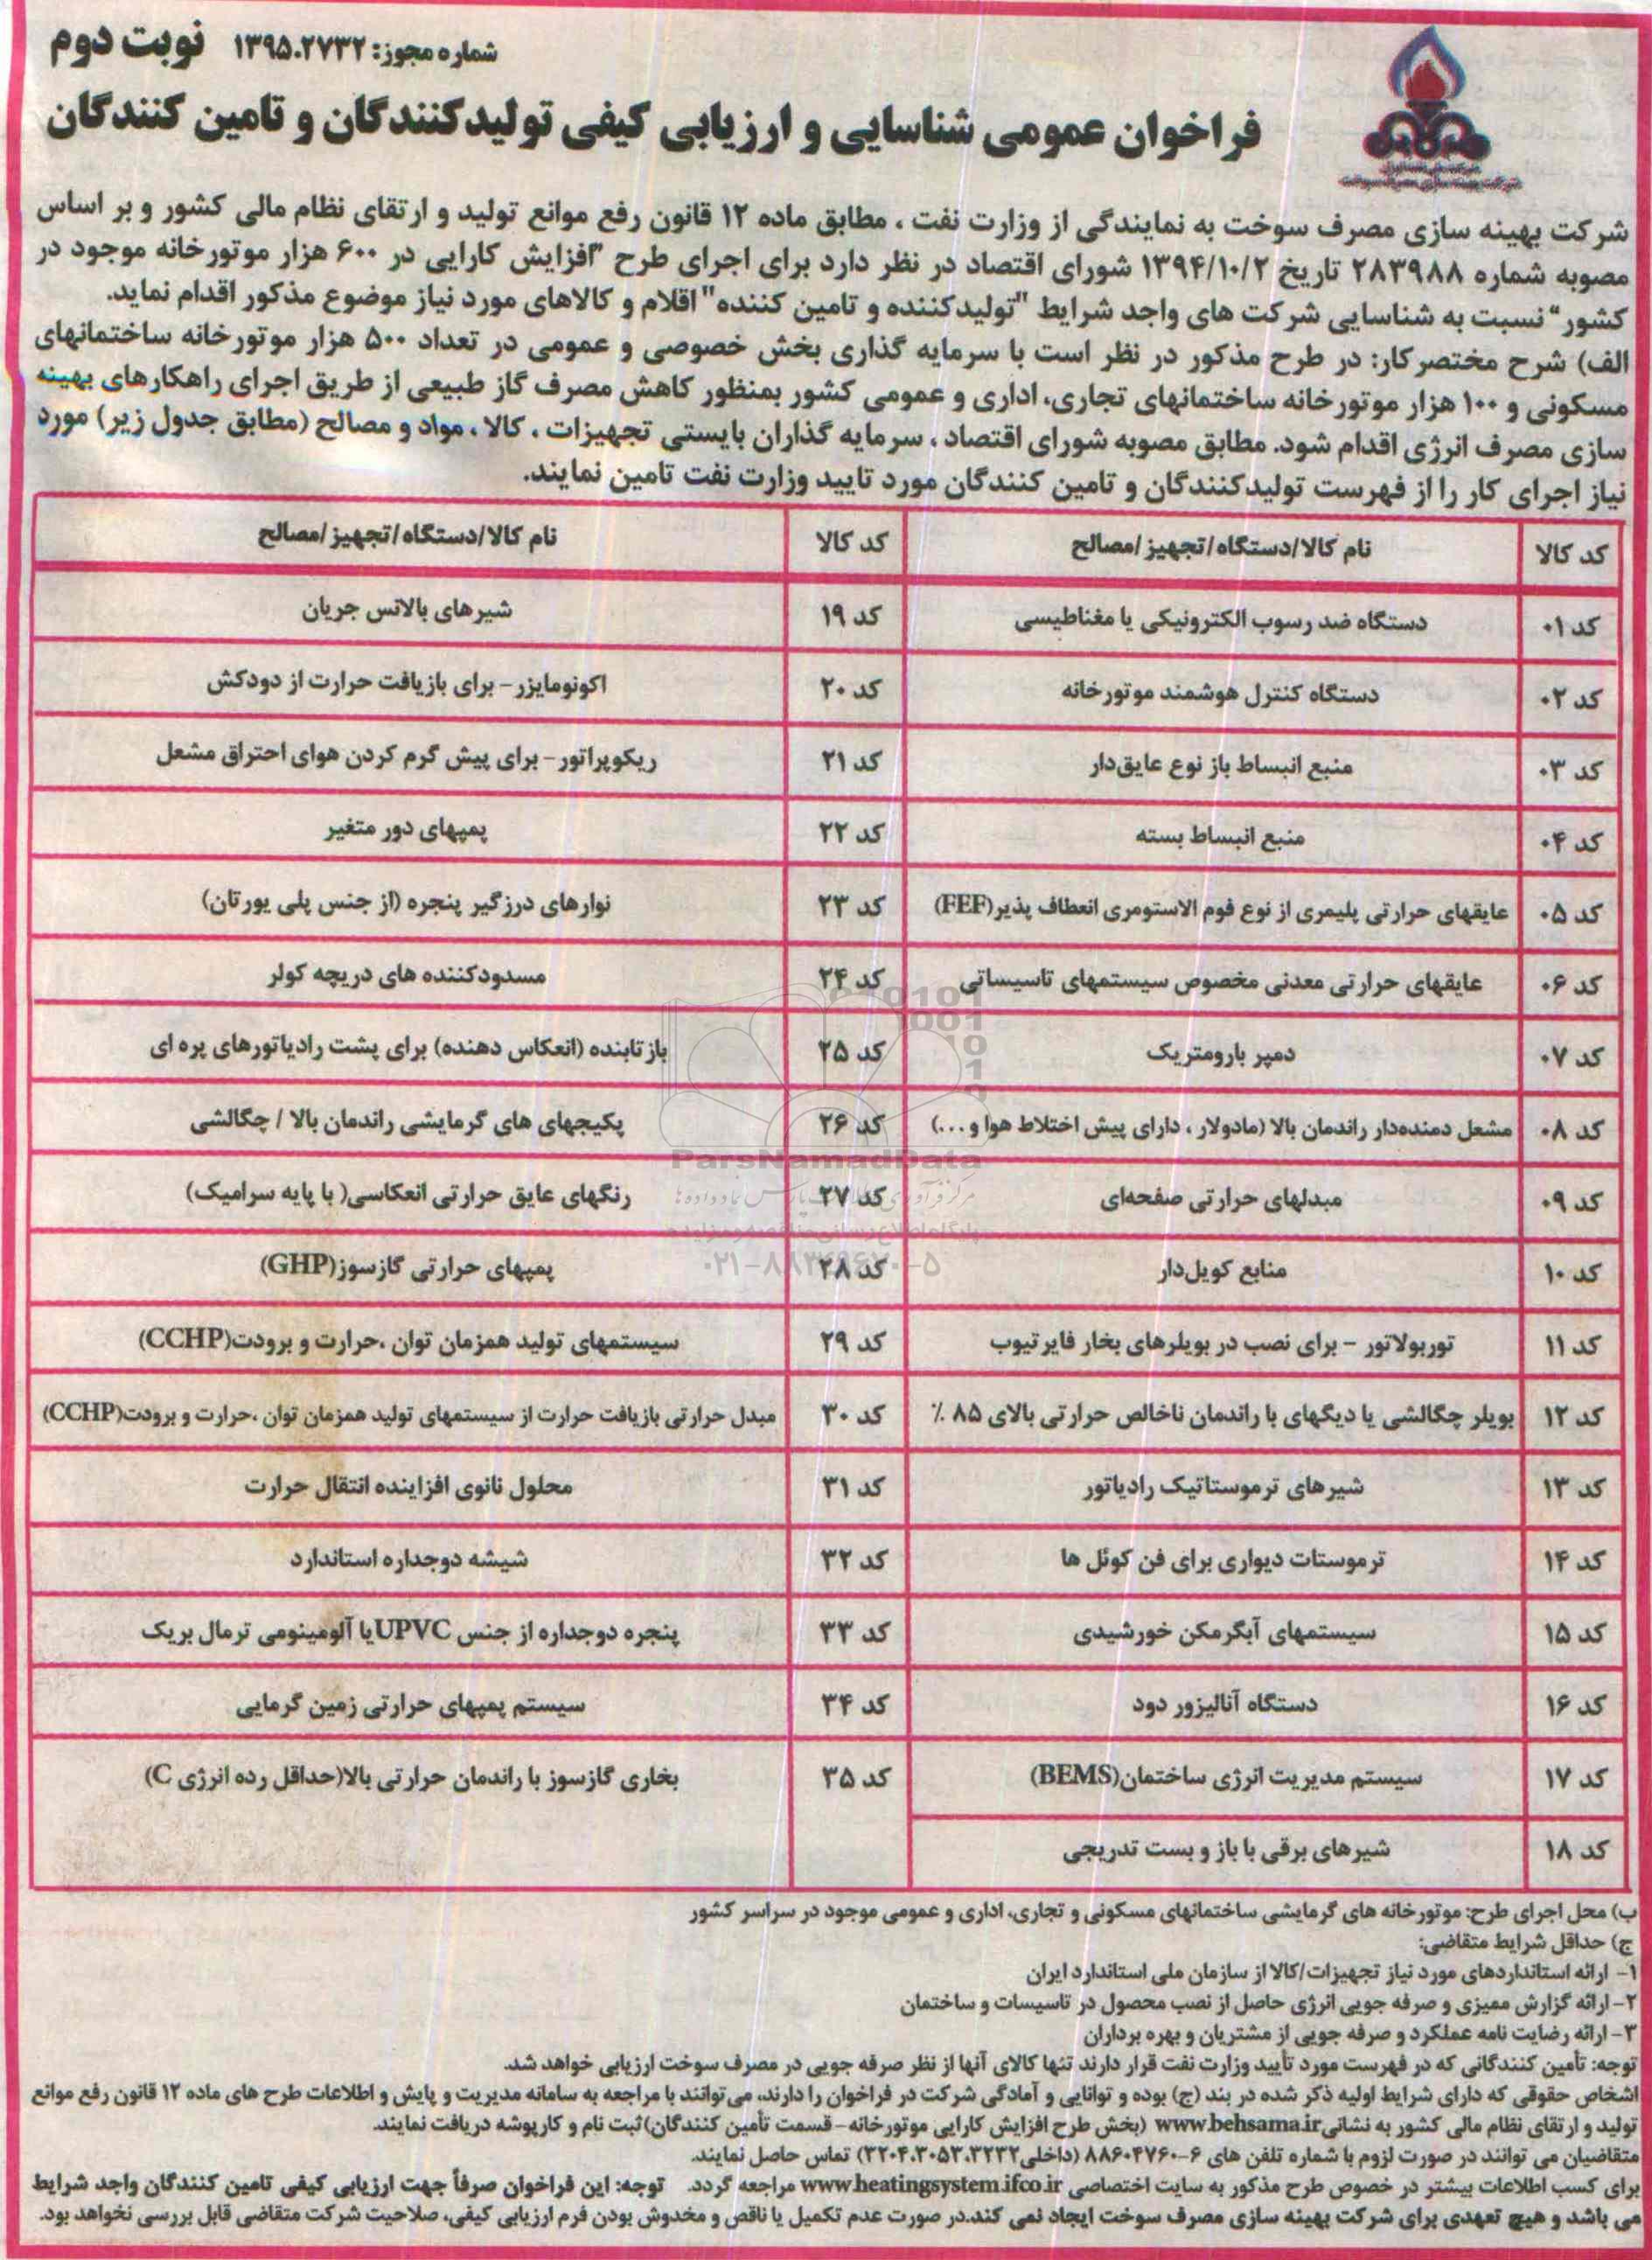 شماره مجوز: ۱۳۹۵.۲۷۳۲ نوبت دوم
فراخوان عمومی شناسایی و ارزیابی کیفی تولیدکنندگان و تامین کنندگان
شرکت بهینه سازی مصرف سوخت به نمایندگی از وزارت نفت ، مطابق ماده ۱۲ قانون رفع موانع تولید و ارتقای نظام مالی کشور و بر اساس
مصوبه شماره ۲۸۳۹۸۸ تاریخ ۱۳۹۴/۱۰/۲ شورای اقتصاد در نظر دارد برای اجرای طرح "افزایش کارایی در ۶۰۰ هزار موتورخانه موجود در
کشور" نسبت به شناسایی شرکت های واجد شرایط "تولیدکننده و تامین کننده" اقلام و کالاهای مورد نیاز موضوع مذکور اقدام نماید.
الف) شرح مختصرکار: در طرح مذکور در نظر است با سرمایه گذاری بخش خصوصی و عمومی در تعداد ۵۰۰ هزار موتورخانه ساختمانهای
مسکونی و ۱۰۰ هزار موتورخانه ساختمانهای تجاری، اداری و عمومی کشور بمنظور کاهش مصرف گاز طبیعی از طریق اجرای راهکارهای بهینه
سازی مصرف انرژی اقدام شود. مطابق مصوبه شورای اقتصاد ، سرمایه گذاران بایستی تجهیزات ، کالا ، مواد و مصالح (مطابق جدول زیر) مورد
نیاز اجرای کار را از فهرست تولیدکنندگان و تامین کنندگان مورد تایید وزارت نفت تامین نمایند.
کد کالا نام کالا/دستگاه/تجهیز/مصالح کد کالا نام کالا/دستگاه/تجهیز/مصالح
کد ۰۱ دستگاه ضد رسوب الکترونیکی یا مغناطیسی کد ۱۹ شیرهای بالانس جریان
کد ۰۲ دستگاه کنترل هوشمند موتورخانه کد ۲۰ اکونومایزر - برای بازیافت حرارت از دودکش
کد ۰۳ منبع انبساط باز نوع عایق‌دار کد ۲۱ ریکوپراتور - برای پیش گرم کردن هوای احتراق مشعل
کد ۰۴ منبع انبساط بسته کد ۲۲ پمپهای دور متغیر
کد ۰۵ عایقهای حرارتی پلیمری از نوع فوم الاستومری انعطاف پذیر(FEF) کد ۲۳ نوارهای درزگیر پنجره (از جنس پلی یورتان)
کد ۰۶ عایقهای حرارتی معدنی مخصوص سیستمهای تاسیساتی کد ۲۴ مسدودکننده های دریچه کولر
کد ۰۷ دمپر بارومتریک کد ۲۵ بازتابنده (انعکاس دهنده) برای پشت رادیاتورهای پره ای
کد ۰۸ مشعل دمنده‌دار راندمان بالا (مادولار ، دارای پیش اختلاط هوا و...) کد ۲۶ پکیجهای های گرمایشی راندمان بالا / چگالشی
ParsNamadData
کد ۰۹ مبدلهای حرارتی صفحه‌ای کد ۲۷ رنگهای عایق حرارتی انعکاسی( با پایه سرامیک)
کد ۱۰ منابع کویل‌دار کد ۲۸ پمپهای حرارتی گازسوز(GHP)
کد ۱۱ توربولاتور - برای نصب در بویلرهای بخار فایر تیوب کد ۲۹ سیستمهای تولید همزمان توان ،حرارت و برودت(CCHP)
کد ۱۲ بویلر چگالشی یا دیگهای با راندمان ناخالص حرارتی بالای ۸۵ ٪ کد ۳۰ مبدل حرارتی بازیافت حرارت از سیستمهای تولید همزمان توان ،حرارت و برودت(CCHP)
کد ۱۳ شیرهای ترموستاتیک رادیاتور کد ۳۱ محلول نانوی افزاینده انتقال حرارت
کد ۱۴ ترموستات دیواری برای فن کوئل ها کد ۳۲ شیشه دوجداره استاندارد
کد ۱۵ سیستمهای آبگرمکن خورشیدی کد ۳۳ پنجره دوجداره از جنس UPVC یا آلومینومی ترمال بریک
کد ۱۶ دستگاه آنالیزور دود کد ۳۴ سیستم پمپهای حرارتی زمین گرمایی
کد ۱۷ سیستم مدیریت انرژی ساختمان(BEMS) کد ۳۵ بخاری گازسوز با راندمان حرارتی بالا(حداقل رده انرژی C)
کد ۱۸ شیرهای برقی با باز و بست تدریجی
ب) محل اجرای طرح: موتورخانه های گرمایشی ساختمانهای مسکونی و تجاری، اداری و عمومی موجود در سراسر کشور
ج) حداقل شرایط متقاضی:
۱- ارائه استانداردهای مورد نیاز تجهیزات/کالا از سازمان ملی استاندارد ایران
۲- ارائه گزارش ممیزی و صرفه جویی انرژی حاصل از نصب محصول در تاسیسات و ساختمان
۳- ارائه رضایت نامه عملکرد و صرفه جویی از مشتریان و بهره برداران
توجه: تأمین کنندگانی که در فهرست مورد تأیید وزارت نفت قرار دارند تنها کالای آنها از نظر صرفه جویی در مصرف سوخت ارزیابی خواهد شد.
اشخاص حقوقی که دارای شرایط اولیه ذکر شده در بند (ج) بوده و توانایی و آمادگی شرکت در فراخوان را دارند، می‌توانند با مراجعه به سامانه مدیریت و پایش و اطلاعات طرح های ماده ۱۲ قانون رفع موانع
تولید و ارتقای نظام مالی کشور به نشانی www.behsama.ir (بخش طرح افزایش کارایی موتورخانه - قسمت تأمین کنندگان) ثبت نام و کارپوشه دریافت نمایند.
متقاضیان می توانند در صورت لزوم با شماره تلفن های ۶-۸۸۶۰۴۷۶۰ (داخلی ۳۲۰۴،۳۰۵۳،۳۲۳۲) تماس حاصل نمایند.
برای کسب اطلاعات بیشتر در خصوص طرح مذکور به سایت اختصاصی www.heatingsystem.ifco.ir مراجعه گردد. توجه: این فراخوان صرفاً جهت ارزیابی کیفی تامین کنندگان واجد شرایط
می باشد و هیچ تعهدی برای شرکت بهینه سازی مصرف سوخت ایجاد نمی کند.در صورت عدم تکمیل یا ناقص و مخدوش بودن فرم ارزیابی کیفی، صلاحیت شرکت متقاضی قابل بررسی نخواهد بود.